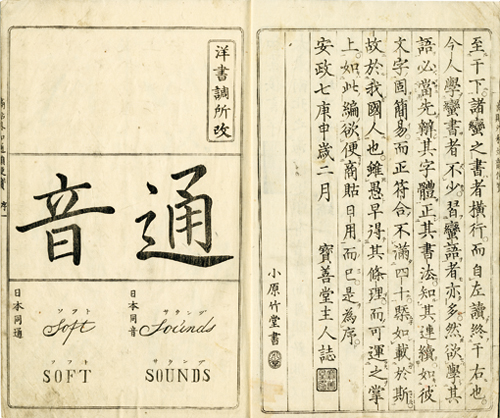 至于下諸蠻之書者橫行而自左讀終于右也
今人學蠻書者不少習蠻語者亦多然欲學其
語必當先辨其字體正其書法知其連續如彼
文字固簡易而正符合不滿四十題如載於斯
故於我國人也雖愚早得其條理而可運之掌
上如此編欲便商貼日用而已是爲序
安政七庚申歲二月 寶善堂主人誌
小原竹堂書
洋書調所改
通音
日本同音
サウンヅ
Sounds
サウンヅ
SOUNDS
日本同通
ソフト
Soft
ソフト
SOFT